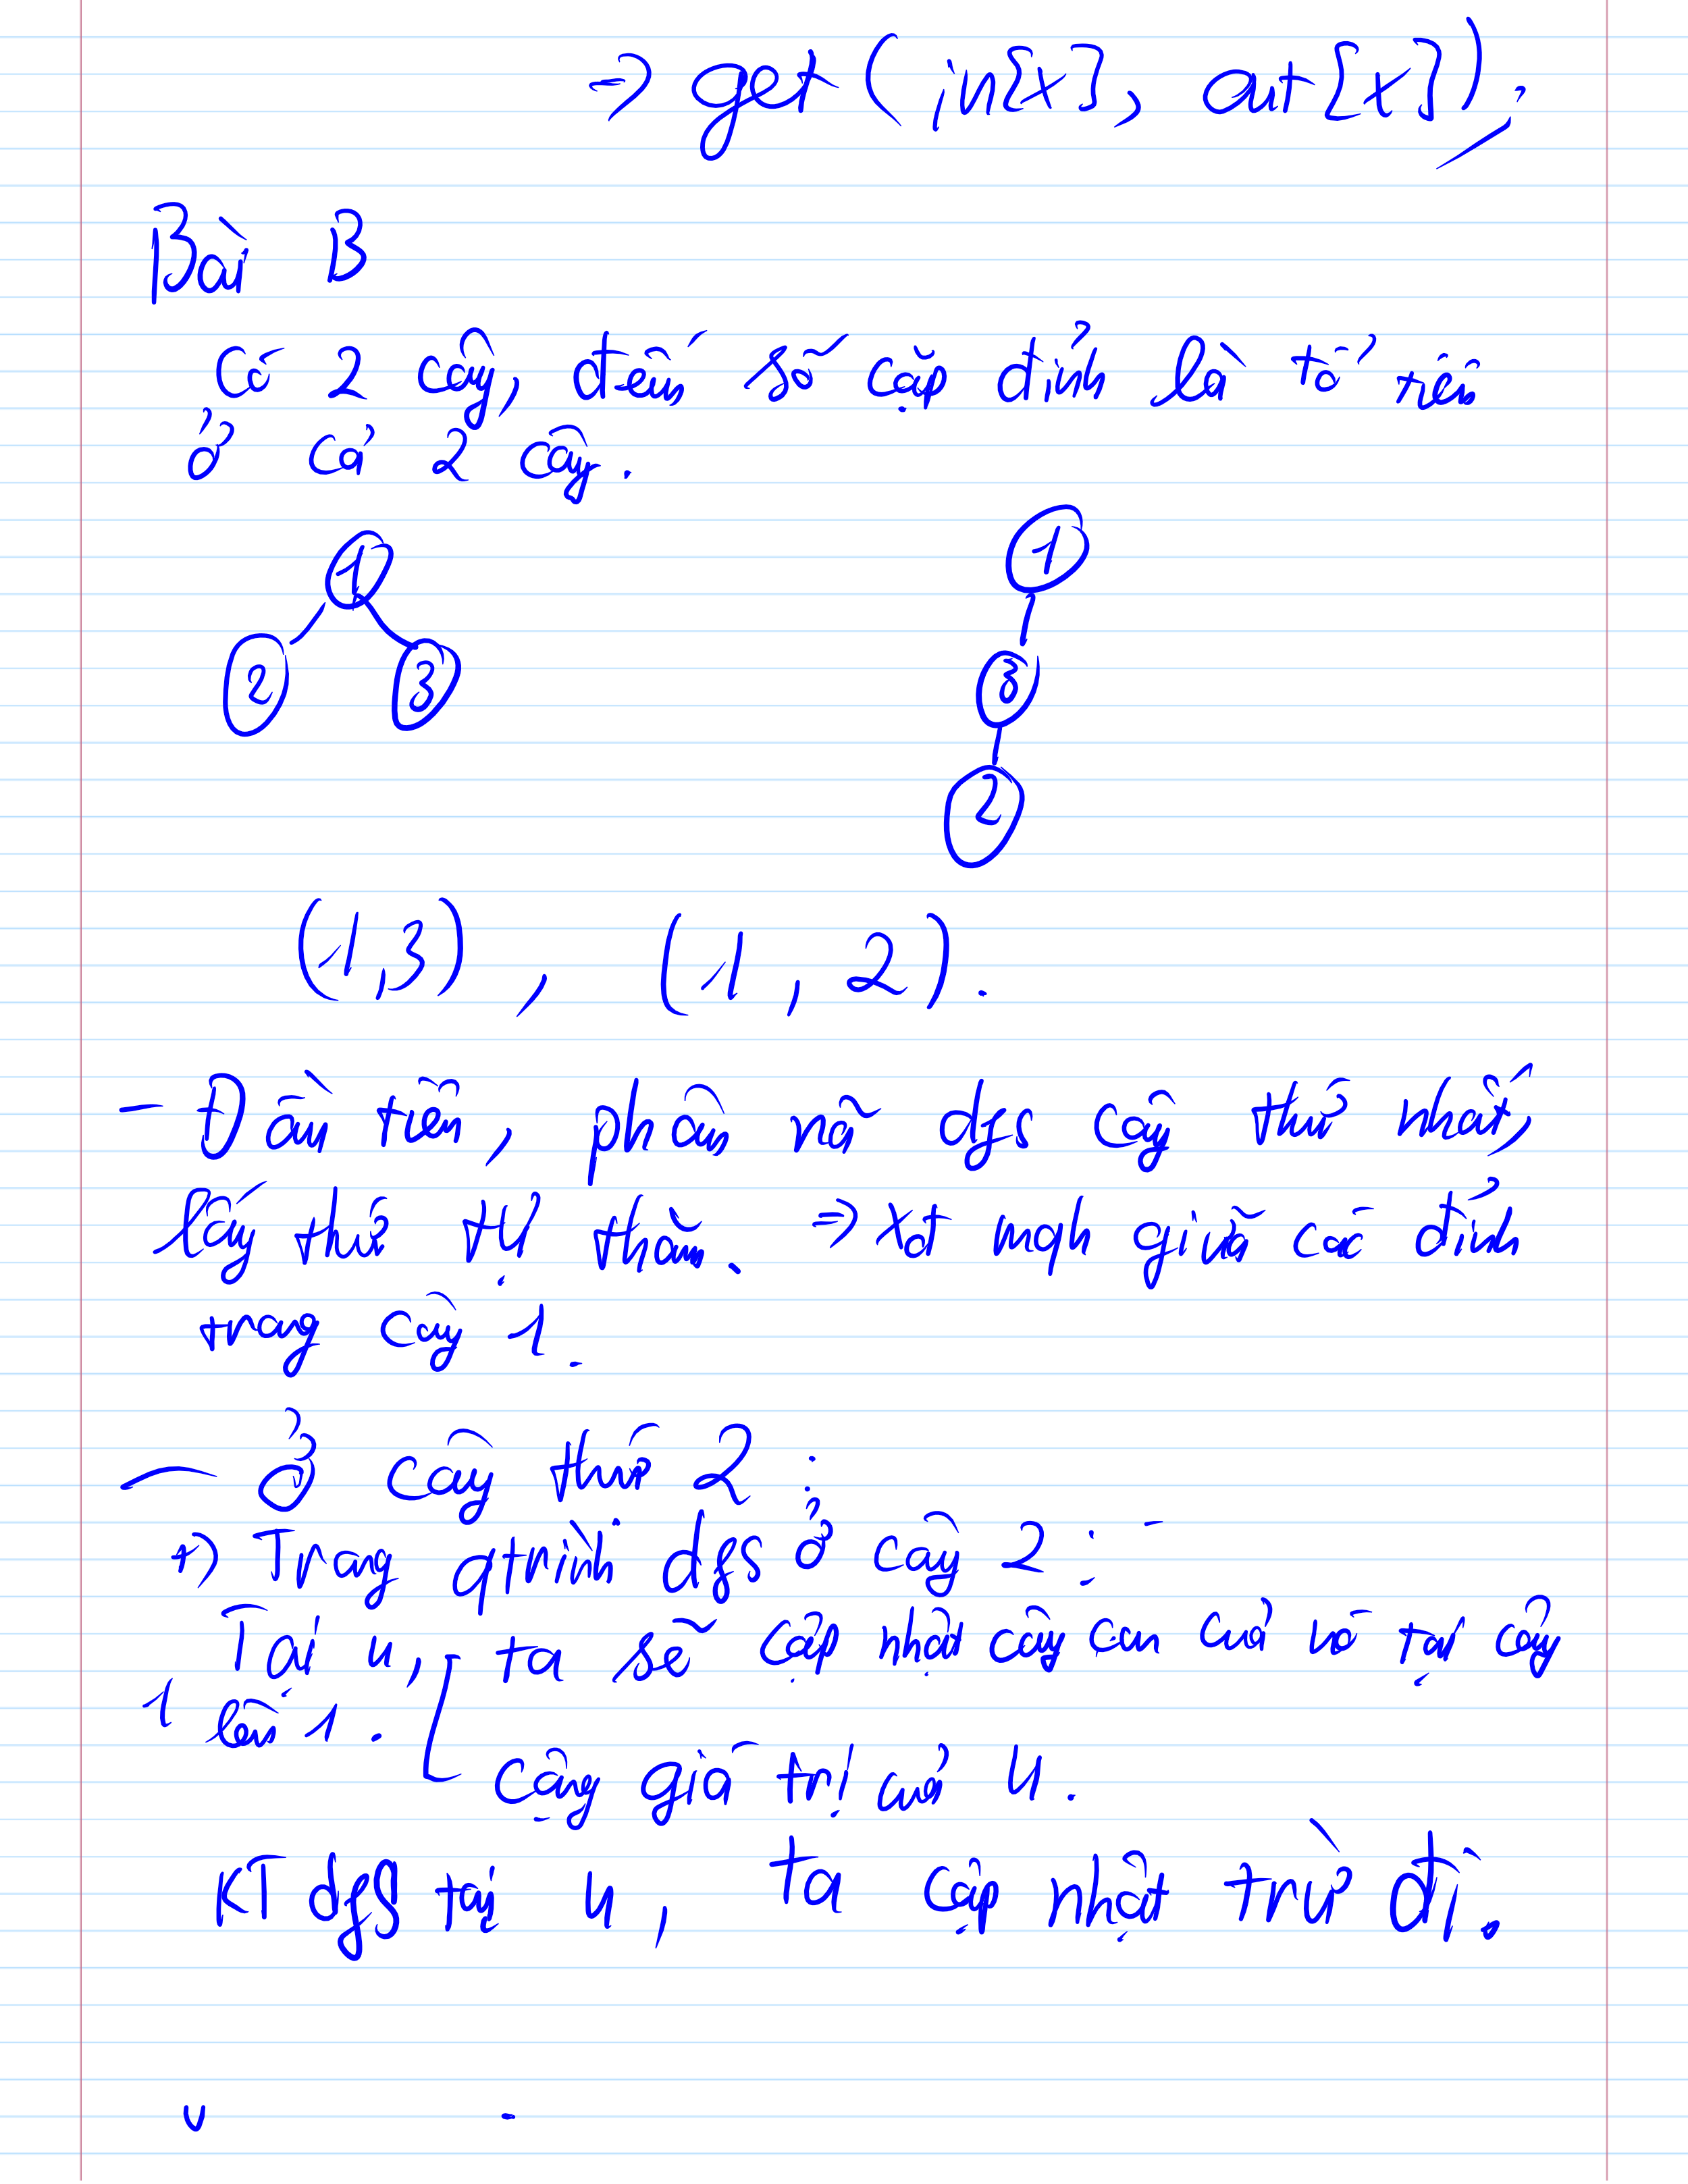 => get(in[x], out[x]);
Bài B
Có 2 cây, đếm số cặp đỉnh là tổ tiên
ở cả 2 cây.
1 1
2 3 3
2
(1,3), (1, 2).
- Đầu tiên, phần nà dfs cây thứ nhất,
lấy thứ tự thăm. => xđ mqh giữa các đỉnh
trong cây 1.
- Ở cây thứ 2:
+) Trong qtrình dfs ở cây 2:
Tại u, ta sẽ cập nhật cây con của nó tại cây
1 lên 1.
Cộng giá trị của u.
KT dfs tại u, ta cập nhật trừ đi.